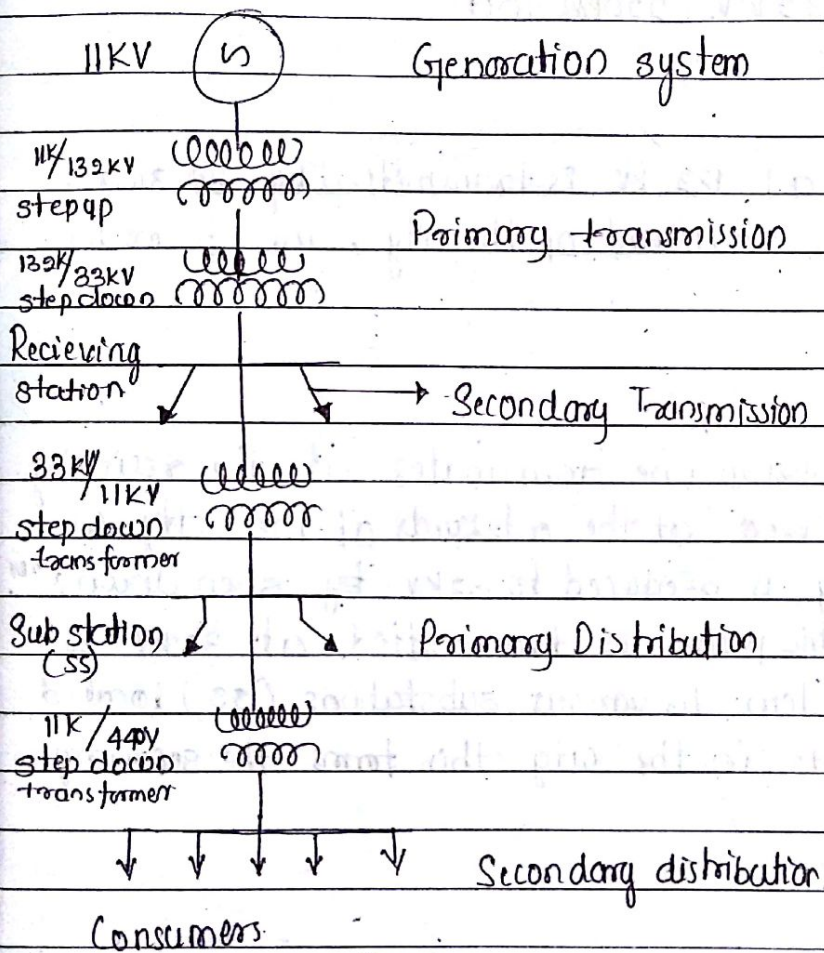 11KV S Genoration system
11K/132KV
step up
Primary transmission
132K/33KV
step down
Recieving
station
Secondary Transmission
33KV/11KV
step down
transformer
Sub station
(SS)
Primary Distribution
11K/440V
step down
transformer
Secondary distribution
Consumers.